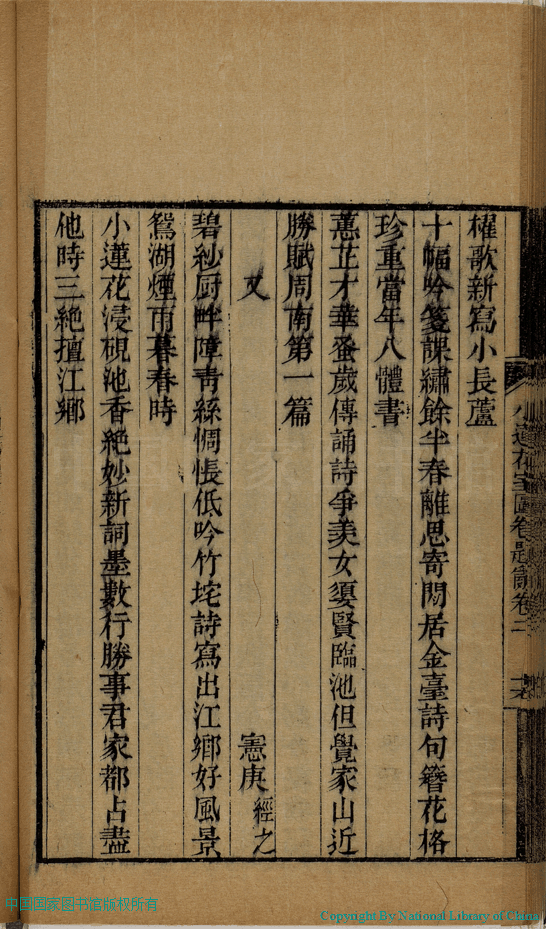 櫂歌新寫小長蘆
十幅吟箋課繡餘半春離思寄閒居金臺詩句簪花格
珍重當年八體書
蕙芷才華蚤歲傳誦詩爭羨女嬃賢臨池但覺家山近
勝賦周南第一篇
又　憲庚經之
碧紗厨畔障青絲惆悵低吟竹垞詩寫出江鄉好風景
鴛湖煙雨暮春時
小蓮花浸硯池香絶妙新詞墨數行勝事君家都占盡
他時三絶擅江鄉
小蓮花室圖卷題詞卷二
中国国家图书馆版权所有
Copyright By National Library of China